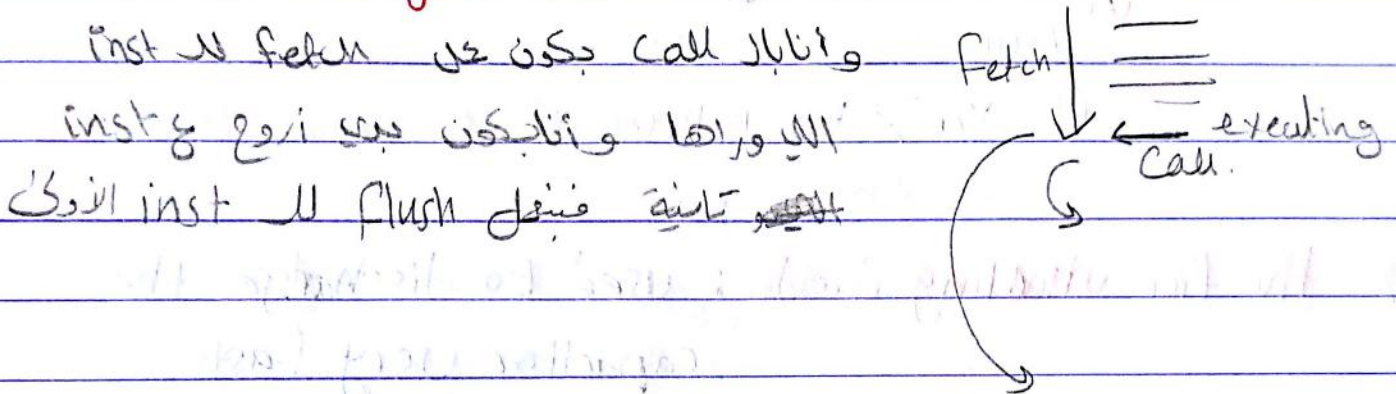 وأنا بال call بكون عمل fetch لل inst
اللي وراها وأنا بكون بدي أروح ع inst
تانية فبنعمل flush لل inst الأولى
fetch
executing
call.